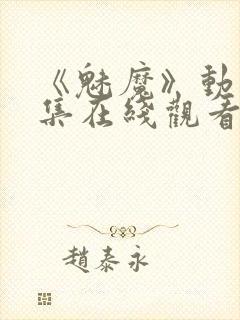 《魅魔》動
集在綫觀看
趙泰永